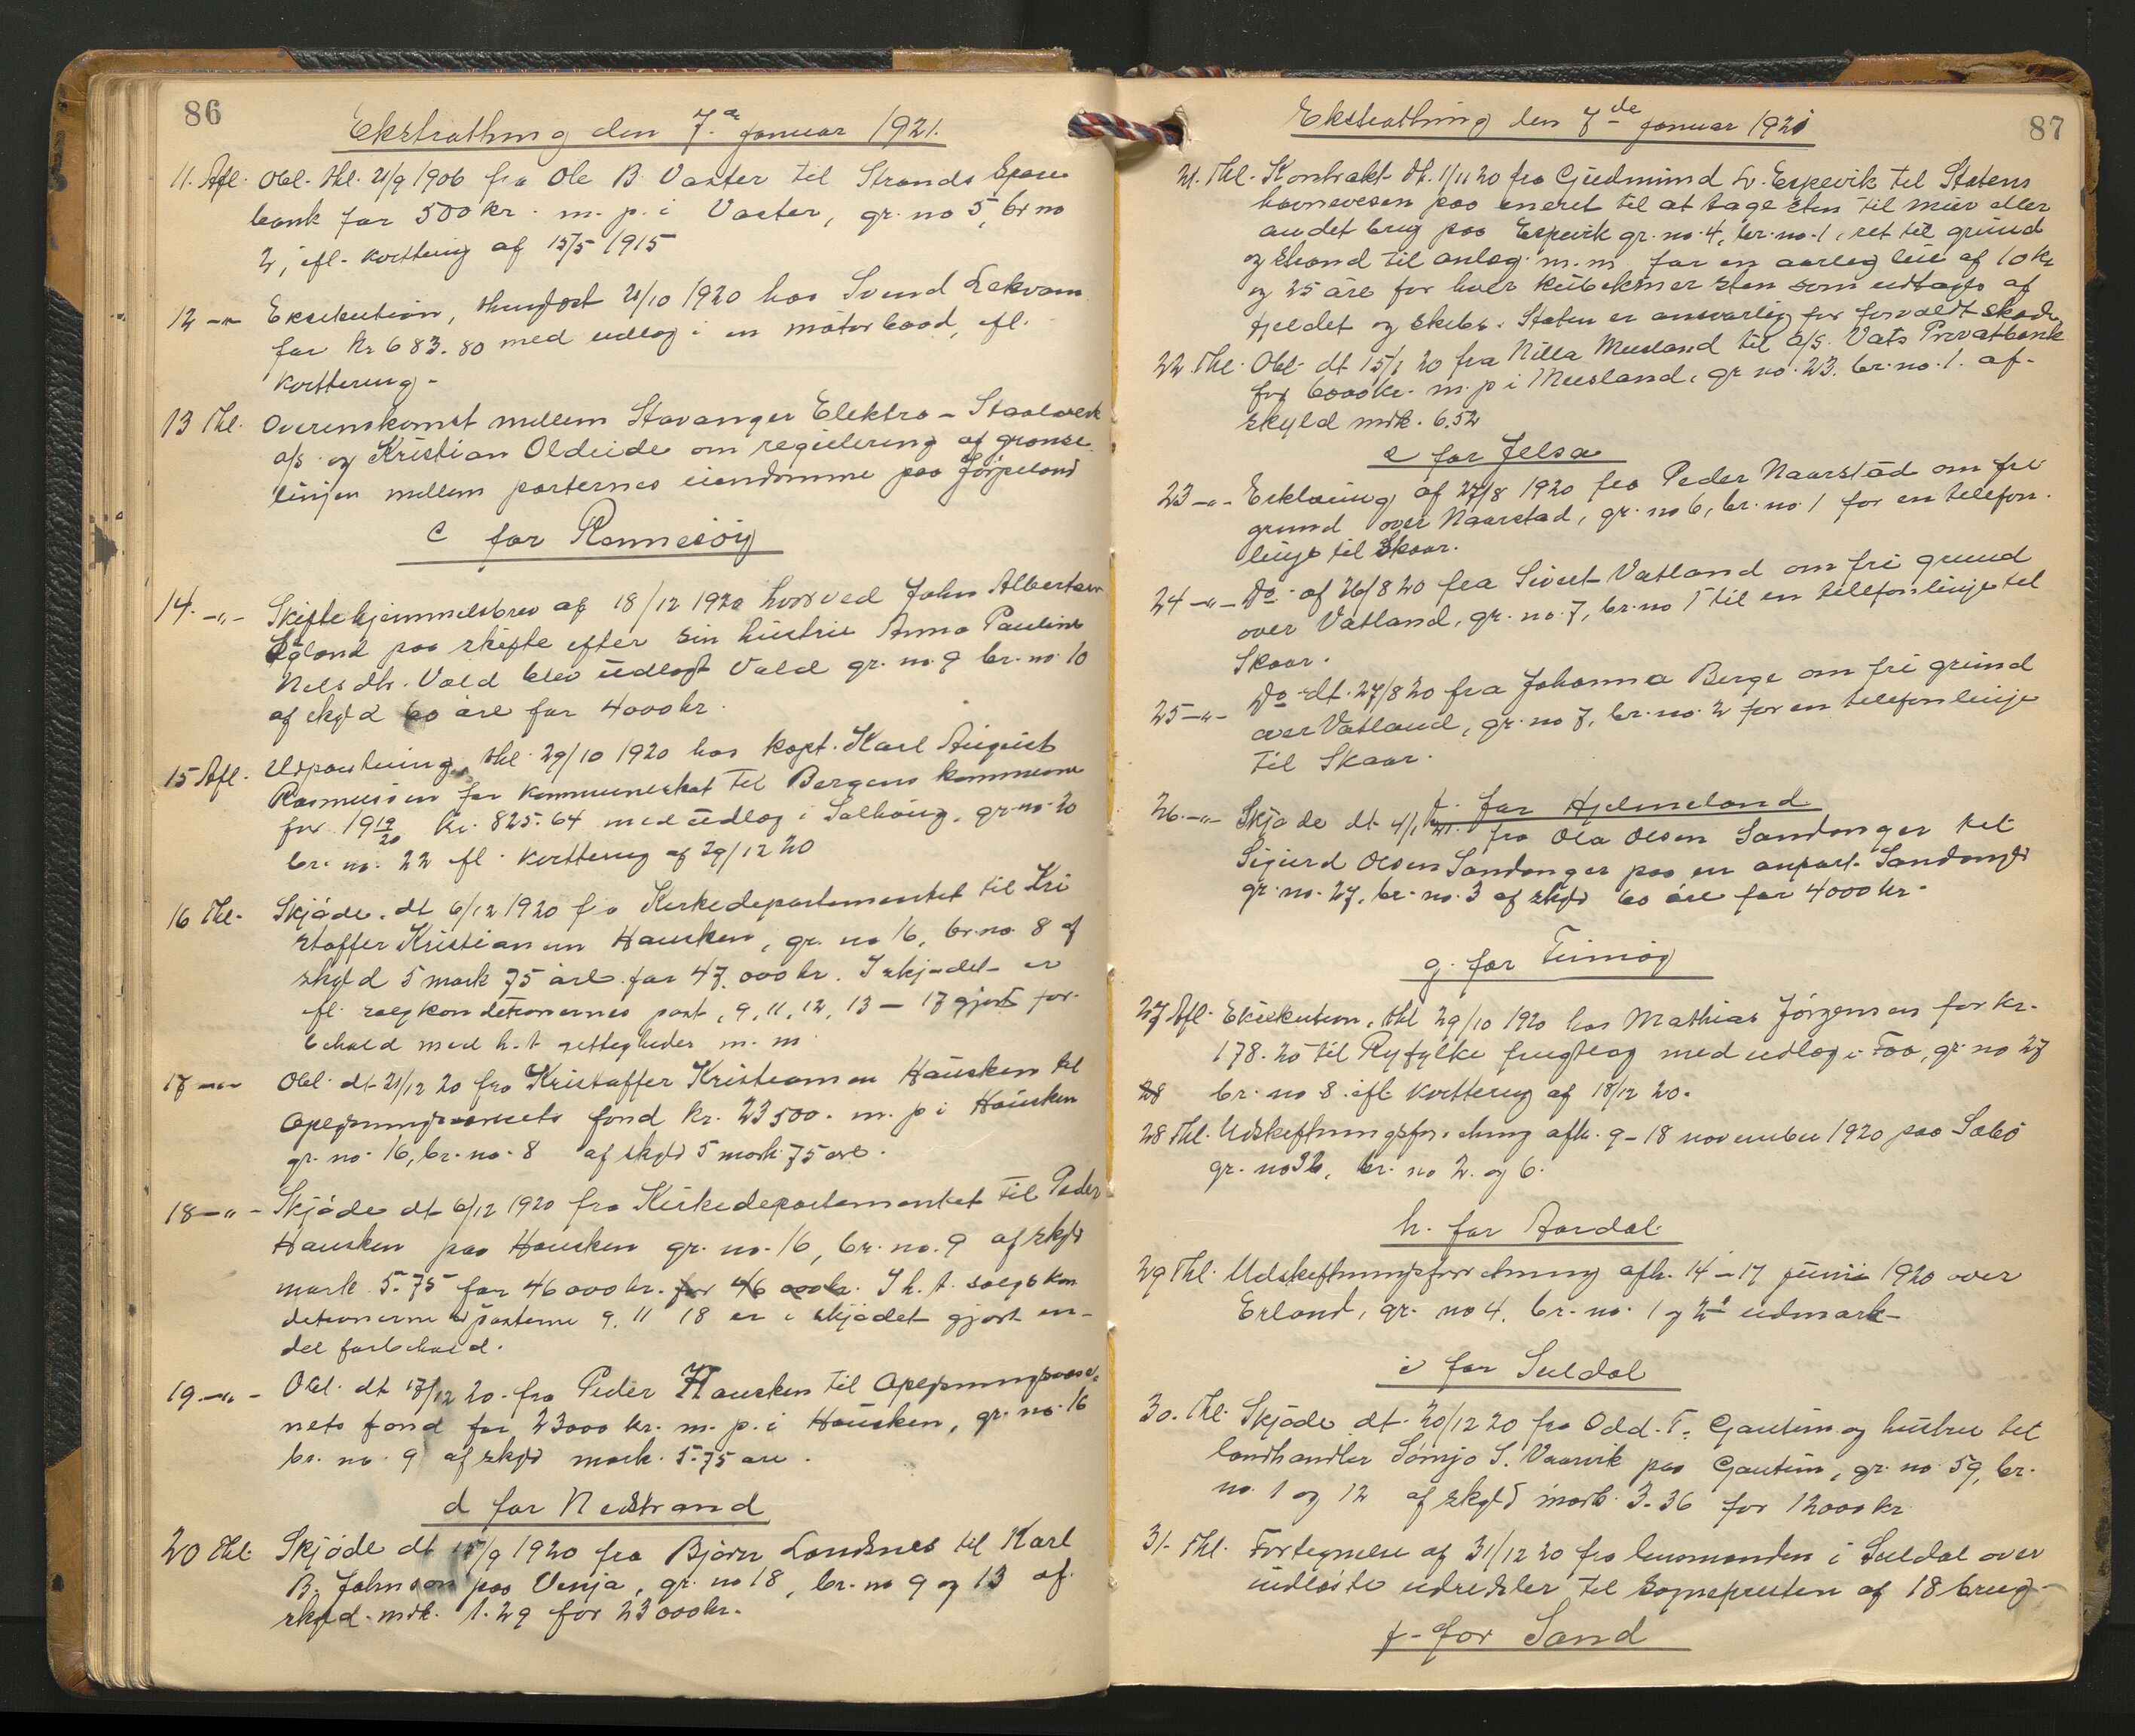 86
Ekstrathing den 7.de januar 1921.
11. Afl. Obl. thl. 21/9 1906 fra Ole B Vaster til Strands Spare
bank for 500 kr. m. p. i Vaster, gr. no 5, br no
2, ifl. kvittering af 15/5 1915
12 -"- Eksekution, thinglyst 21/10 1920 hos Svend Lekvam
for kr 683.80 med udlæg i en motorbaad, ifl.
kvittering.
13 Thl. Overenskomst mellem Stavanger Elektro-Staalverk
a/s og Kristian Oldeide om regulering af grænse
linjen mellem parternes eiendomme paa Jørpeland
c for Rennesøy
14. -"- Skiftehjemmelsbrev af 18/12 1920 hvorved John Albertsen
Ægland paa skifte efter sin hustru Anna Pauline
Nelsdtr. Vold blev udlagt Vold gr. no. 9 br. no. 10
af skyld 60 øre for 4000 kr.
15 Afl. Udpantning, thl. 29/10 1920 hos kapt. Karl August
Rasmussen for kommuneskat til Bergens kommune
for 19 19/20 kr. 825.64 med udlæg i Salhaug, gr. no. 20
br. no. 22 ifl. kvittering af 29/12 20
16 Thl. Skjøde, dt 6/12 1920 fra Kirkedepartementet til Kri
stoffer Kristiansen Hausken, gr. no 16, br. no. 8 af
skyld 5 mark 75 øre for 47.000 kr. I skjødet er
ifl. salgskonditionernes post, 9, 11, 12, 13 - 17 gjort for-
behold med h. t. rettigheder m. m.
17 -"- Obl. dt 21/12 20 fra Kristoffer Kristiansen Hausken til
Oplysningsvæsenets fond kr. 23500. m. p i Hausken
gr. no. 16, br. no. 8 af skyld 5 mark 75 øre.
18 -"- Skjøde dt 6/12 1920 fra Kirkedepartementet til Peder
Hausken paa Hausken gr. no. 16, br. no. 9 af skyld
mark 5.75 for 46000 kr. for 46 000 kr. I h. t. salgskon
ditionerne posterne 9, 11 18 er i skjødet gjort en-
del forbehold.
19. -"- Obl. dt 17/12 20. fra Peder Hausken til Oplysningsvæse
nets fond for 23000 kr. m. p. i Hausken, gr. no. 16
br. no. 9 af skyld mark. 5.75 øre.
d for Nedstrand
20 Thl Skjøde dt 15/9 1920 fra Bjørn Landsnes til Karl
B. Johnson paa Vinja, gr. no 18, br. no 9 og 13 af
skyld. mrk. 1.29 for 23000 kr.
87
Ekstrathing den 7de januar 1921
21. Thl. Kontrakt dt. 1/11 20 fra Gudmund L. Espevik til Statens
havnevesen paa eneret til at tage sten til mur eller
andet brug paa Espevik gr. no. 4, br. no. 1, ret til grund
og strand til anlæg m. m for en aarleg leie af 10 kr
og 25 øre for hver kubikmer sten som udtages af
fjeldet og skibes. Staten er ansvarlig for forvoldt skade
22 Thl. Obl. dt 15/1 20 fra Nilla Musland til a/s. Vats Privatbank
for 6000 kr. m. p i Musland, gr no. 23. br. no. 1. af
skyld mrk. 6.52
e for Jelsa
23 -"- Erklæring af 27/8 1920 fra Peder Naarstad om fri
grund over Naarstad, gr. no 6, br. no. 1 for en telefon.
linje til Skaar.
24 -"- Do. af 26/8 20 fra Sivert Vatland om fri grund
over Vatland, gr. no. 7, br. no 1 til en telefonlinje til
Skaar.
25 -"- Do dt. 27/8 20 fra Johanna Berge om fri grund
over Vatland, gr. no 7, br. no. 2 for en telefonlinje
til Skaar.
f. for Hjelmeland
26. -"- Skjøde dt 4/1 21. fra Ola Olsen Sandanger til
Sigurd Olsen Sandanger paa en anpart Sandanger
gr. no. 27, br. no. 3 af skyld 60 øre for 4000 kr.
g. for Finnøy
27 Afl. Eksekution, thl 29/10 1920 hos Mathias Jørgensen for kr.
178.20 til Ryfylke frugtlag med udlæg i Foo, gr. no 27
28 br. no 8. ifl. kvittering af 18/12 20.
28 Thl. Udskiftningsforretning afh. 9-18 november 1920 paa Sæbø
gr. no 36, br. no 2. og 6.
h. for Aardal
29 Thl. Udskiftningsforretning afh. 14-17 juni 1920 over
Erland, gr. no 4. br. no. 1 og 2's udmark
i for Suldal
30. Thl. Skjøde dt. 20/12 20 fra Odd. T. Gautun og hustru til
landhandler Sømjo S. Vaarvik paa Gautun, gr. no 59, br.
no. 1 og 12 af skyld mark 3.36 for 12000 kr
31. Thl. Fortegnelse af 31/12 20 fra lensmanden i Suldal over
udløste udredsler til sognepresten af 18 brug.
j. for Sand